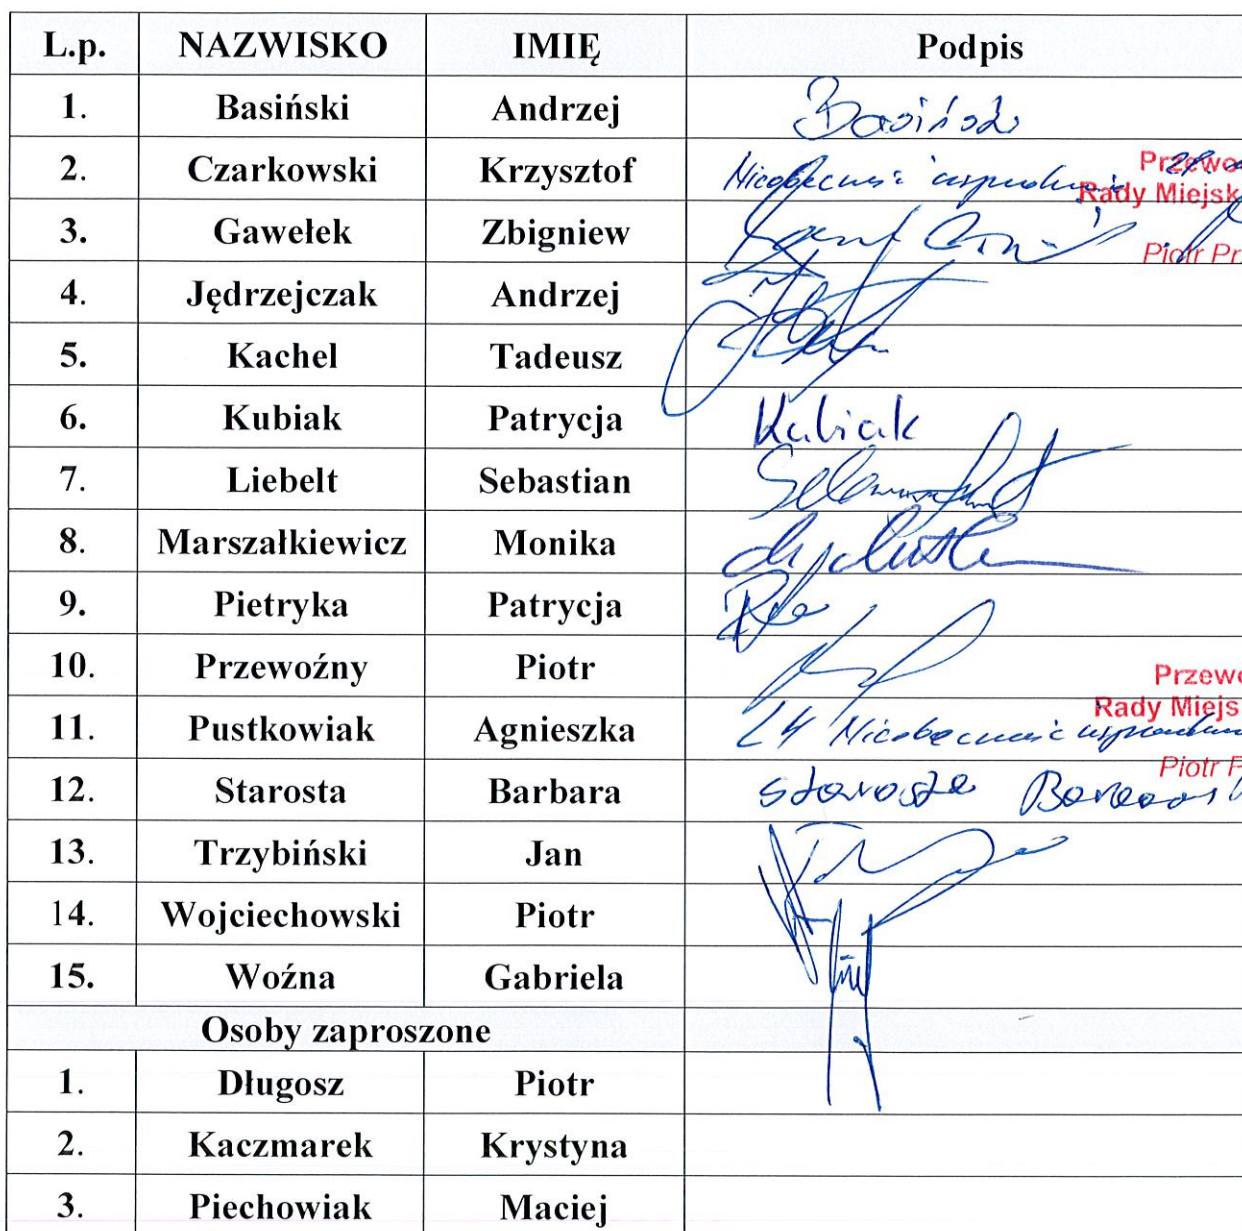 L.p. NAZWISKO IMIĘ Podpis
1. Basiński Andrzej Basiński
2. Czarkowski Krzysztof Nieobecność
Przewo
Rady Miejsk
3. Gawełek Zbigniew
Piotr Pr
4. Jędrzejczak Andrzej
5. Kachel Tadeusz
6. Kubiak Patrycja Kubiak
7. Liebelt Sebastian
8. Marszałkiewicz Monika
9. Pietryka Patrycja
10. Przewoźny Piotr
Przewo
Rady Miejs
11. Pustkowiak Agnieszka L4 Nieobecność
Piotr P
12. Starosta Barbara Starosta Barbara
13. Trzybiński Jan
14. Wojciechowski Piotr
15. Woźna Gabriela
Osoby zaproszone
1. Długosz Piotr
2. Kaczmarek Krystyna
3. Piechowiak Maciej